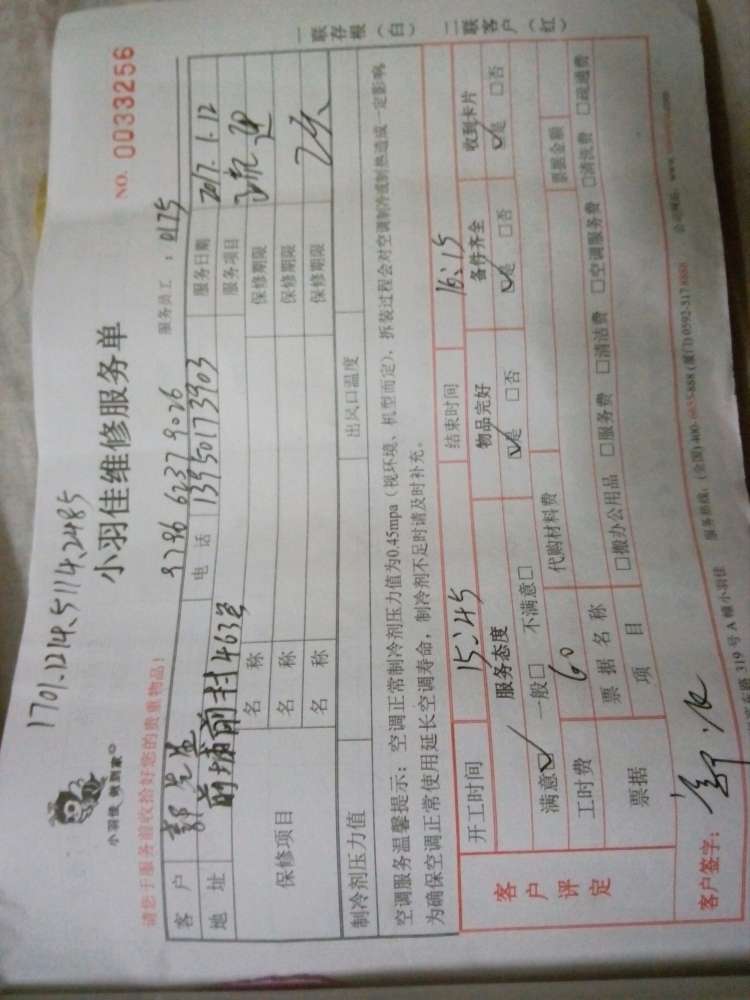 1701.1214.5114.2485
小羽佳维修服务单
NO. 0033256
小羽佳 俏到家
请您于服务前收拾好您的贵重物品!
9796 6237 9026
服务员工:0125
客户 郭先生
电话 13950173903
服务日期 2017.1.12
地址 前埔前村463号
服务项目
保修项目
名称
保修期限
名称
保修期限
名称
保修期限 7天
制冷剂压力值
出风口温度
空调服务温馨提示:空调正常制冷剂压力值为0.45mpa(视环境、机型而定),拆装过程会对空调制冷或制热造成一定影响,
为确保空调正常使用延长空调寿命,制冷剂不足时请及时补充。
一联存根(白)
二联客户(红)
客户评定
开工时间 15:45
结束时间 16:15
服务态度
物品完好
备件齐全
收到卡片
满意☑ 一般□ 不满意□
☑是 □否
☑是 □否
☑是 □否
工时费 60
代购材料费
票据
票据名称
票据金额
项目
□搬办公用品 □服务费 □清洁费 □空调服务费 □清洗费 □疏通费
客户签字:
319号A幢小羽佳
服务热线:(全国)400-6635-888 (厦门)0592-317 8888
公司网站:www.